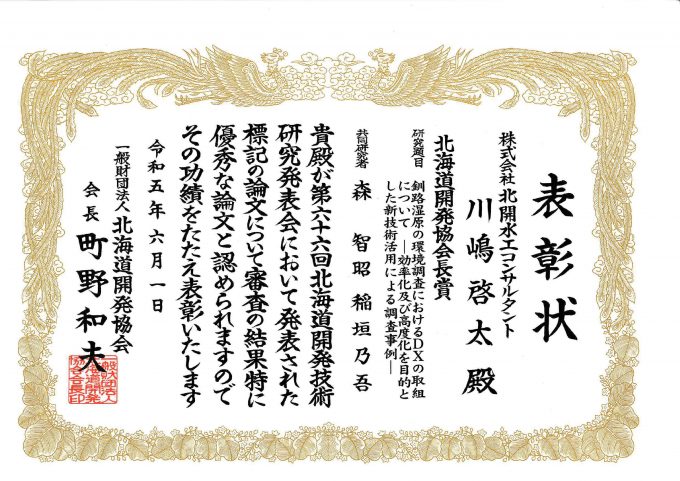 表彰状
株式会社 北開水工コンサルタント
川嶋啓太 殿
北海道開発協会長賞
研究題目 釧路湿原の環境調査におけるDXの取組
について ―効率化及び高度化を目的と
した新技術活用による調査事例―
共同研究者 森 智昭 稲垣乃吾
貴殿が第六十六回北海道開発技術
研究発表会において発表された
標記の論文について審査の結果特に
優秀な論文と認められますので
その功績をたたえ表彰いたします
令和五年六月一日
一般財団法人 北海道開発協会
会長 町野和夫